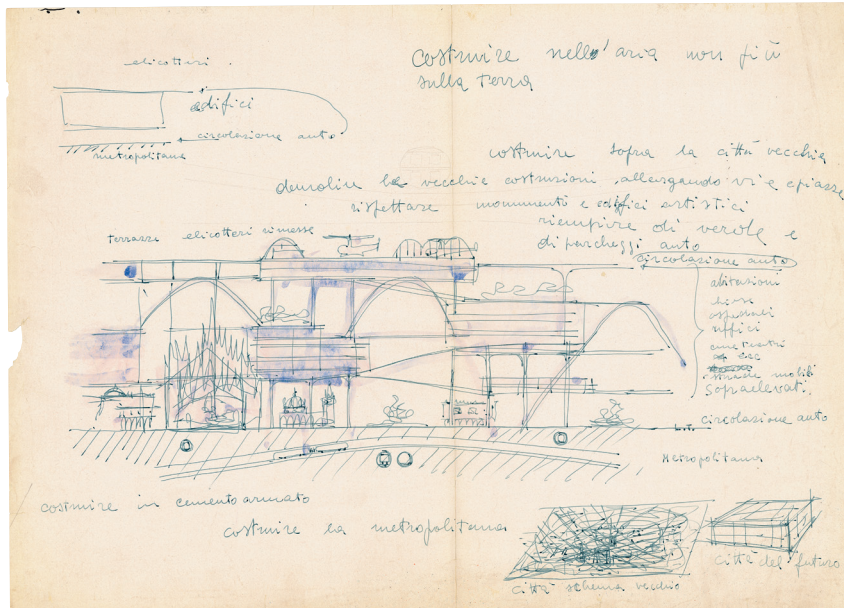 elicotteri.
costruire nell'aria non più
sulla terra
edifici
circolazione auto
metropolitana
costruire sopra la città vecchia
demolire le vecchie costruzioni, allargando vie e piazze
rispettare monumenti e edifici artistici
riempire di verde e
di parcheggi auto
terrazze elicotteri rimesse
circolazione auto
abitazioni
chiese
ospedali
uffici
cine teatri
ecc
strade mobili
sopraelevati.
circolazione auto
L.T.
Metropolitana
costruire in cemento armato
costruire la metropolitana
città schema vecchio
città del futuro